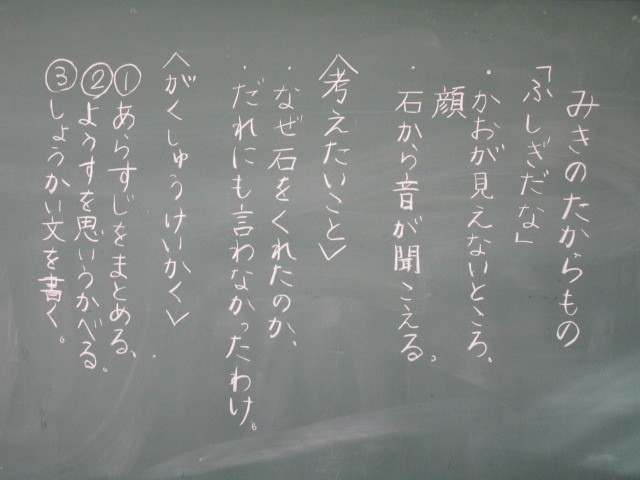 みきのたからもの
「ふしぎだな」
・かおが見えないところ、
顔
・石から音が聞こえる。
〈考えたいこと〉
・なぜ石をくれたのか、
・だれにも言わなかったわけ。
〈がくしゅうけいかく〉
①あらすじをまとめる、
②ようすを思いうかべる。
③しょうかい文を書く。